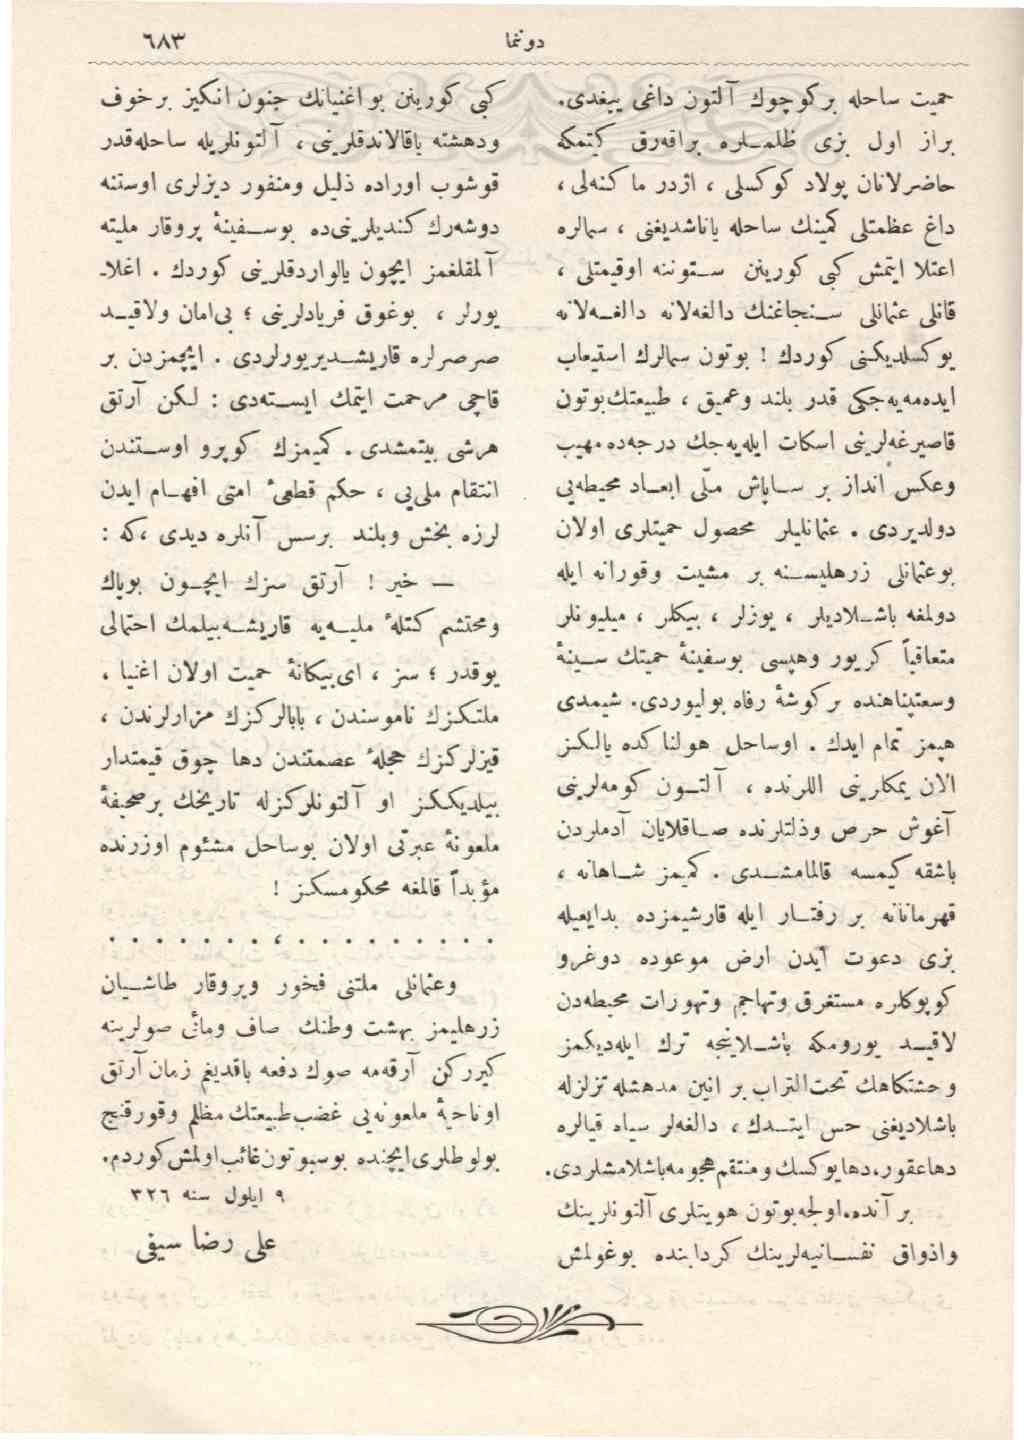 دوتما
٦٨٣
حمیت ساحله بر كوچوك آلتون داغی ییغدی.
براز اول بزی ظلمـلره براقه‌رق كیتمكه
حاضرلانان پولاد كوكسلی ، اژدر ماكنه‌لی ،
داغ عظمتلی كمینك ساحله یاناشدیغنی ، سمالره
اعتلا ایتمش كبی كورینن ستوننه اوقیمتلی ،
قانلی عثمانلی سنجاغنك دالغه‌لانه دالغه‌لانه
یوكسلدیكنی كوردك ! بوتون سمالرك استیعاب
ایده‌مه‌یه‌جكی قدر بلند وعمیق ، طبیعتك بوتون
قاصیرغه‌لرینی اسكات ایله‌یه‌جك درجه‌ده مهیب
وعكس انداز بر ساپاش ملّی ابعاد محیطه‌یی
دولدیردی . عثمانلیلر محصول حمیتلری اولان
بوعثمانلی زرهلیسنه بر مشیت وقورانه ایله
دولمغه باشلادیلر ، یوزلر ، بیكلر ، میلیونلر
متعاقباً كریور وهپسی بوسفینهٔ حمیتك سینهٔ
وسعتپناهنده بر كوشهٔ رفاه بولیوردی. شیمدی
هپمز تمام ایدك . اوساحل هولناكده یالكز
الان یمكلرینی اللرنده ، آلتون كومه‌لرینی
آغوش حرص وذلتلرنده صاقلایان آدملردن
باشقه كیمسه قالمامشدی . كمیمز شاهانه ،
قهرمانانه بر رفتار ایله قارشیمزده بدایعیله
بزی دعوت ایدن ارض موعوده دوغرو
كوپوكلره مستغرق وتهاجم وتهورات محیطه‌دن
لاقید یورومكه باشلاینجه ترك ایله‌دیكمز
وحشتكاهك تحت‌التراب بر انین مدهشله تزلزله
باشلادیغنی حس ایتدك ، دالغه‌لر سیاه قیالره
دها عقور، دها یوكسك ومنتقم هجومه باشلامشلردی.
بر آنده. اولجه بوتون هویتلری آلتونلرینك
واذواق نفسانیه‌لرینك كردابنده بوغولمش
كبی كورینن بو اغنیانك جنون انكیز بر خوف
ودهشته باقالاندقلرینی ، آلتونلریله ساحله قدر
قوشوب اوراده ذلیل ومنفور دیزلری اوستنه
دوشه‌رك كندیلرینی‌ده بوسفینهٔ پروقار ملیته
آلمقلغمز ایچون یالواردقلرینی كوردك . اغلا-
یورلر ، بوغوق فریادلرینی ؛ بی‌امان ولاقید
صرصرلره قاریشدیریورلردی . ایچمزدن بر
قاچی مرحمت ایتمك ایسته‌دی : لكن آرتق
هرشی بیتمشدی . كمیمزك كوپرو اوستندن
انتقام ملی‌یی ، حكم قطعیٔ امتی افهام ایدن
لرزه بخش وبلند برسس آنلره دیدی ،كه :
— خیر ! آرتق سزك ایچون بوپاك
ومحتشم كتلهٔ ملیه‌یه قاریشه‌بیلمك احتمالی
یوقدر ؛ سز ، ای بیكانهٔ حمیت اولان اغنیا .
ملتكزك ناموسندن ، بابالركزك مزارلرندن ،
قیزلركزك حجلهٔ عصمتندن دها چوق قیمتدار
بیلدیككز او آلتونلركزله تاریخك بر صحیفهٔ
ملعونهٔ عبرتی اولان بوساحل مشئوم اوزرنده
مؤبداً قالمغه محكومسكز !
. . . . . . . ، . . . . . . . . .
وعثمانلی ملتنی فخور وپروقار طاشیان
زرهلیمز بهشت وطنك صاف ومائی صولرینه
كیررکن آرقه‌مه صوك دفعه باقدیغم زمان آرتق
اوناحیهٔ ملعونه‌یی غضب طبیعتك مظلم وقورقنج
بولوطلری ایچنده بوسبوتون غائب اولمش كوردم.
٩ ایلول سنه ٣٢٦
علی رضا سیفی